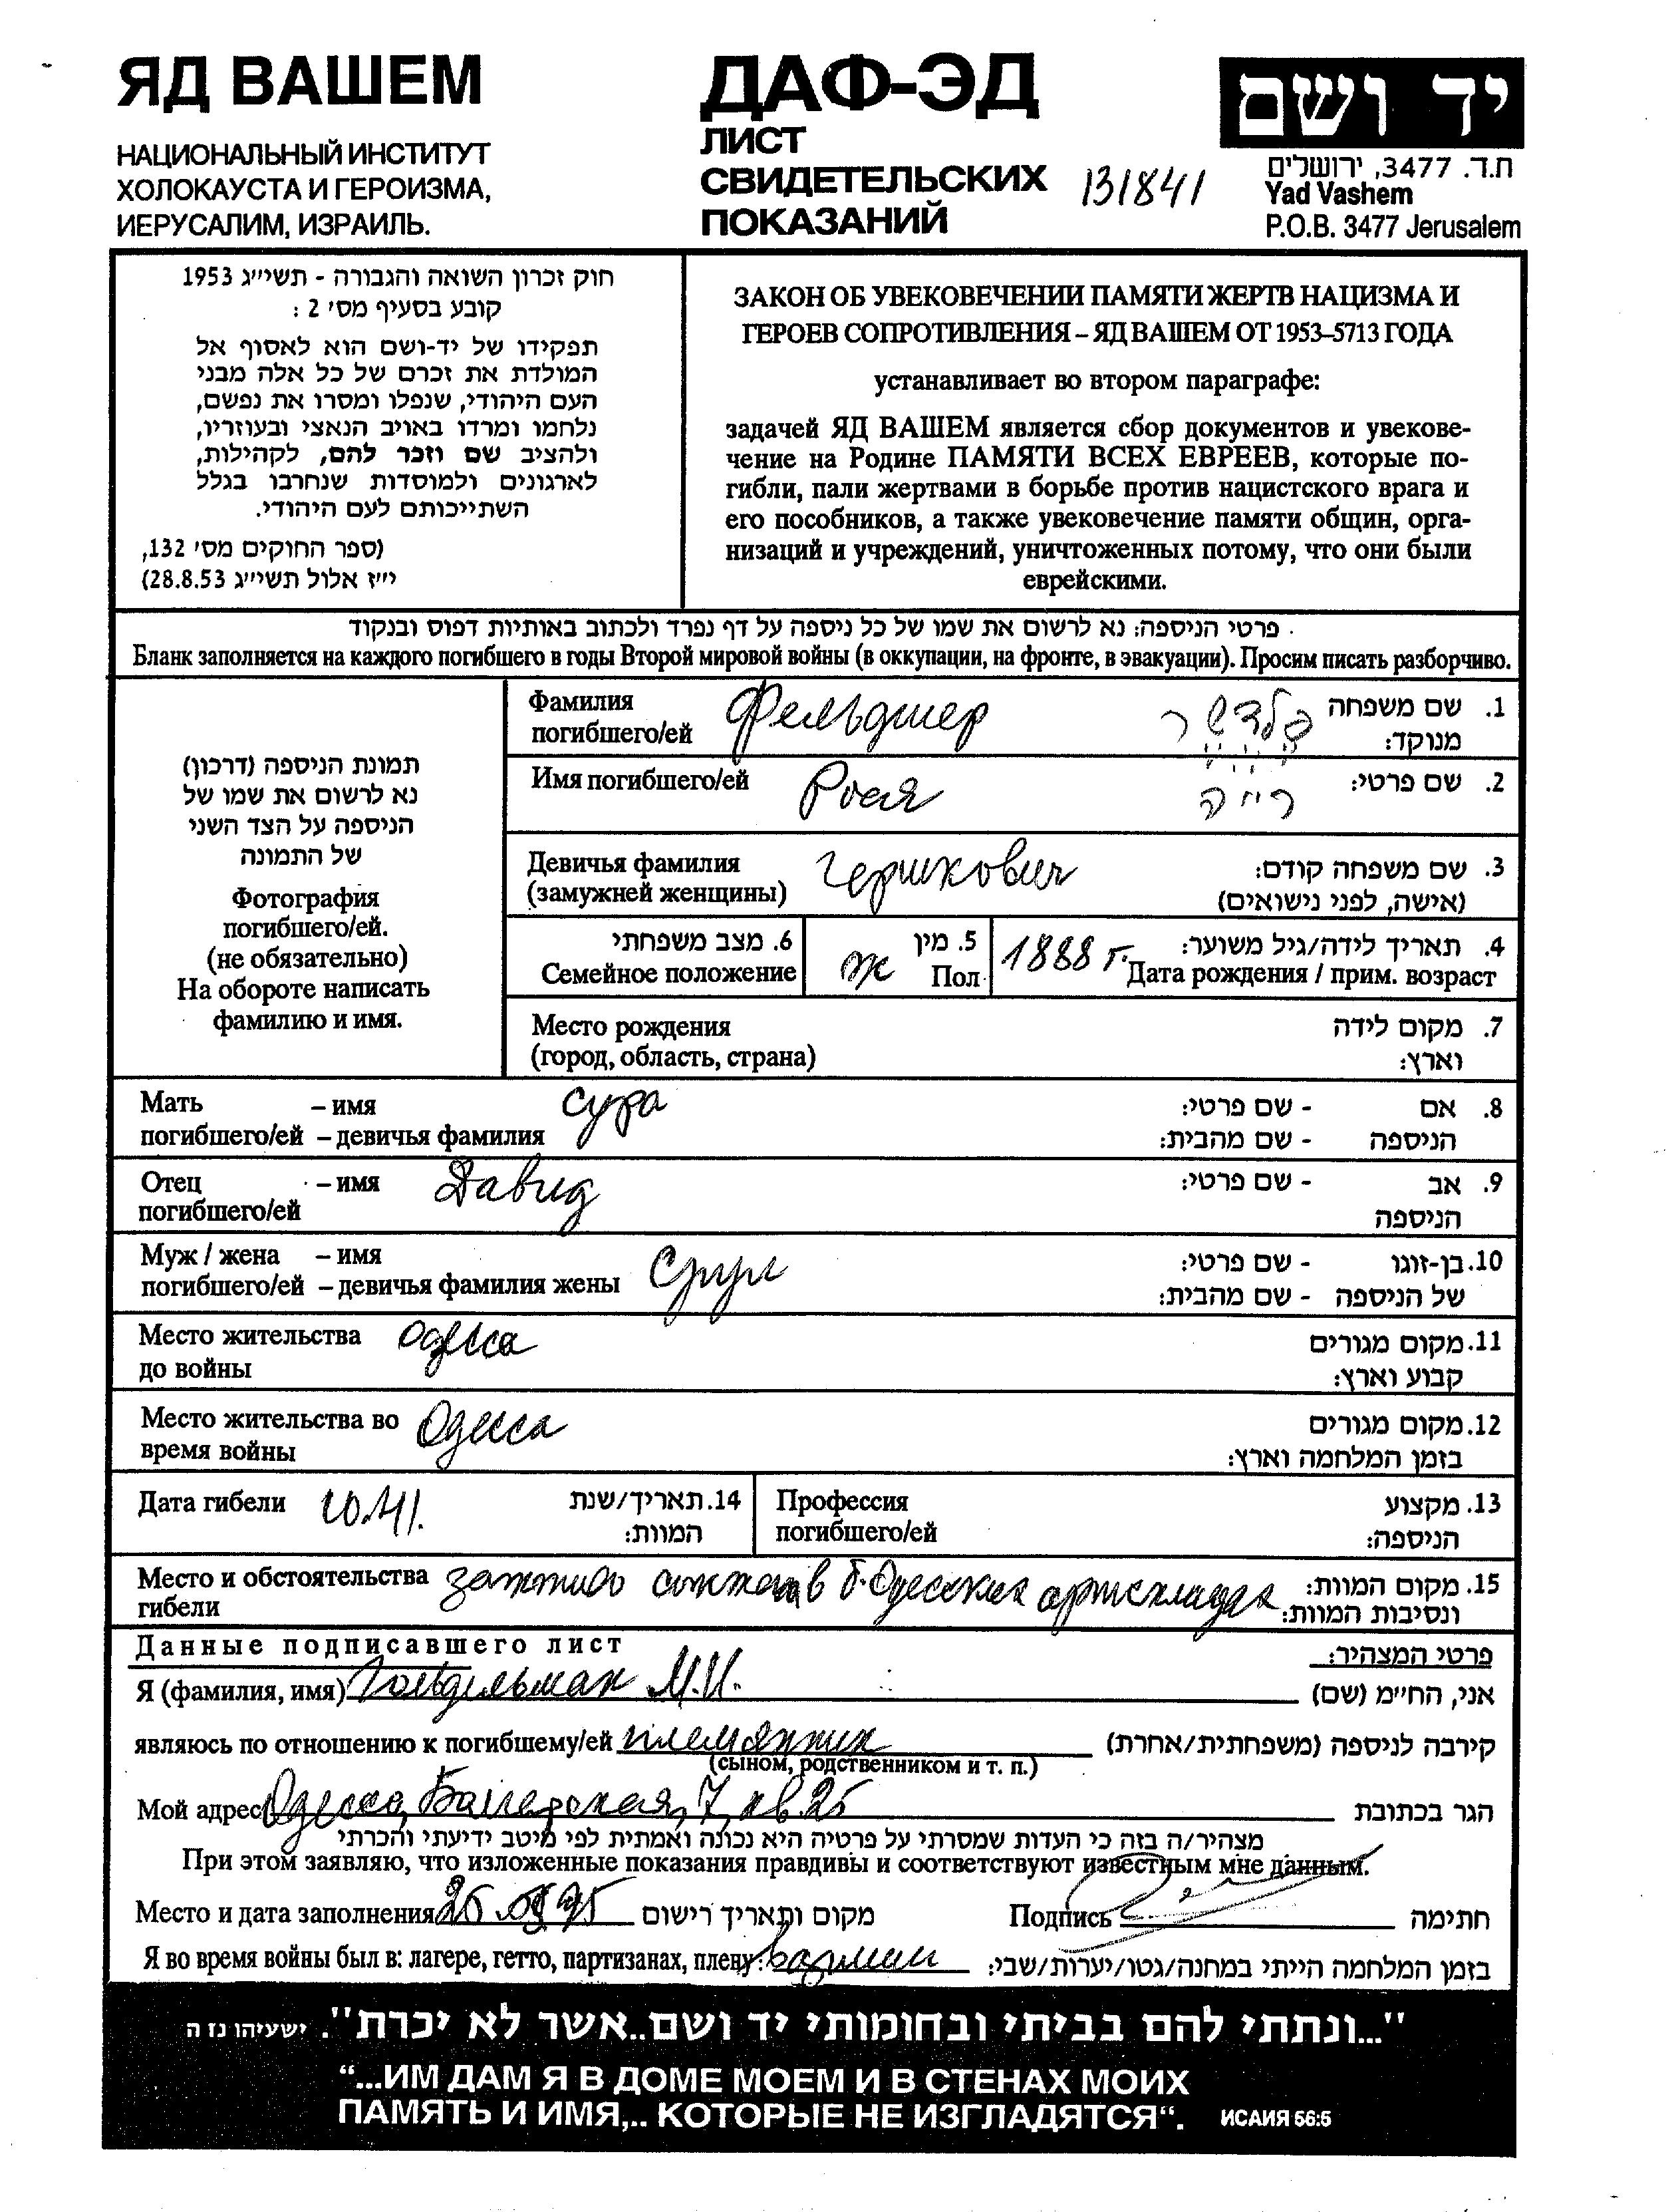 ЯД ВАШЕМ
НАЦИОНАЛЬНЫЙ ИНСТИТУТ
ХОЛОКАУСТА И ГЕРОИЗМА,
ИЕРУСАЛИМ, ИЗРАИЛЬ.
ДАФ-ЭД
ЛИСТ
СВИДЕТЕЛЬСКИХ
ПОКАЗАНИЙ
131841
יד ושם
ת.ד. 3477, ירושלים
Yad Vashem
P.O.B. 3477 Jerusalem
חוק זכרון השואה והגבורה - תשי״ג 1953
קובע בסעיף מס׳ 2 :
תפקידו של יד-ושם הוא לאסוף אל
המולדת את זכרם של כל אלה מבני
העם היהודי, שנפלו ומסרו את נפשם,
נלחמו ומרדו באויב הנאצי ובעוזריו,
ולהציב שם וזכר להם, לקהילות,
לארגונים ולמוסדות שנחרבו בגלל
השתייכותם לעם היהודי.
(ספר החוקים מס׳ 132,
י״ז אלול תשי״ג 28.8.53)
ЗАКОН ОБ УВЕКОВЕЧЕНИИ ПАМЯТИ ЖЕРТВ НАЦИЗМА И
ГЕРОЕВ СОПРОТИВЛЕНИЯ – ЯД ВАШЕМ ОТ 1953–5713 ГОДА
устанавливает во втором параграфе:
задачей ЯД ВАШЕМ является сбор документов и увекове-
чение на Родине ПАМЯТИ ВСЕХ ЕВРЕЕВ, которые по-
гибли, пали жертвами в борьбе против нацистского врага и
его пособников, а также увековечение памяти общин, орга-
низаций и учреждений, уничтоженных потому, что они были
еврейскими.
פרטי הניספה: נא לרשום את שמו של כל ניספה על דף נפרד ולכתוב באותיות דפוס ובנקוד
Бланк заполняется на каждого погибшего в годы Второй мировой войны (в оккупации, на фронте, в эвакуации). Просим писать разборчиво.
תמונת הניספה (דרכון)
נא לרשום את שמו של
הניספה על הצד השני
של התמונה
Фотография
погибшего/ей.
(не обязательно)
На обороте написать
фамилию и имя.
Фамилия
погибшего/ей Фельдшер פלדשר 1. שם משפחה
מנוקד:
Имя погибшего/ей Роза רייה 2. שם פרטי:
Девичья фамилия
(замужней женщины) Гершкович 3. שם משפחה קודם:
(אישה, לפני נישואים)
6. מצב משפחתי
Семейное положение
ж 5. מין
Пол
1888 г. 4. תאריך לידה/גיל משוער:
Дата рождения / прим. возраст
Место рождения 7. מקום לידה
(город, область, страна) וארץ:
Мать – имя Сура 8. אם - שם פרטי:
погибшего/ей – девичья фамилия הניספה - שם מהבית:
Отец – имя Давид 9. אב - שם פרטי:
погибшего/ей הניספה
Муж / жена – имя Срул 10. בן-זוגו - שם פרטי:
погибшего/ей – девичья фамилия жены של הניספה - שם מהבית:
Место жительства Одесса 11. מקום מגורים
до войны קבוע וארץ:
Место жительства во Одесса 12. מקום מגורים
время войны בזמן המלחמה וארץ:
Дата гибели 10.41. 14. תאריך/שנת
המוות:
Профессия 13. מקצוע
погибшего/ей הניספה:
Место и обстоятельства заживо сожжена в б. Одесских артскладах 15. מקום המוות:
гибели ונסיבות המוות:
Данные подписавшего лист פרטי המצהיר:
Я (фамилия, имя) Гойдельман М.И. אני, החי״מ (שם)
являюсь по отношению к погибшему/ей племянник קירבה לניספה (משפחתית/אחרת)
(сыном, родственником и т. п.)
Мой адрес Одесса, 7, кв. 25 הגר בכתובת
מצהיר/ה בזה כי העדות שמסרתי על פרטיה היא נכונה ואמתית לפי מיטב ידיעתי והכרתי
При этом заявляю, что изложенные показания правдивы и соответствуют известным мне данным.
Место и дата заполнения 95 מקום ותאריך רישום Подпись חתימה
Я во время войны был в: лагере, гетто, партизанах, плену: בזמן המלחמה הייתי במחנה/גטו/יערות/שבי:
"...ונתתי להם בביתי ובחומותי יד ושם..אשר לא יכרת". ישעיהו נז ה
“...ИМ ДАМ Я В ДОМЕ МОЕМ И В СТЕНАХ МОИХ
ПАМЯТЬ И ИМЯ,.. КОТОРЫЕ НЕ ИЗГЛАДЯТСЯ“. ИСАИЯ 56:5